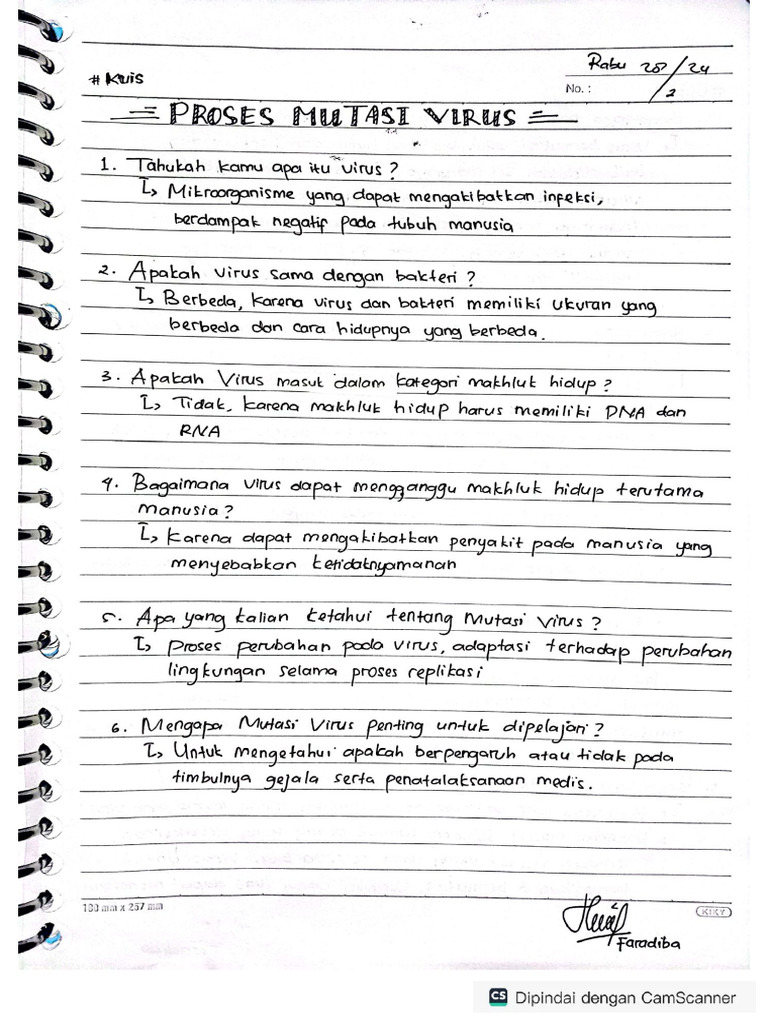 # Kuis
Rabu 28/2/24
No. :
PROSES MUTASI VIRUS
1. Tahukah kamu apa itu virus ?
↳ Mikroorganisme yang dapat mengakibatkan infeksi,
berdampak negatif pada tubuh manusia
2. Apakah virus sama dengan bakteri ?
↳ Berbeda, karena virus dan bakteri memiliki ukuran yang
berbeda dan cara hidupnya yang berbeda.
3. Apakah Virus masuk dalam kategori makhluk hidup ?
↳ Tidak, karena makhluk hidup harus memiliki DNA dan
RNA
4. Bagaimana virus dapat mengganggu makhluk hidup terutama
manusia ?
↳ Karena dapat mengakibatkan penyakit pada manusia yang
menyebabkan ketidaknyamanan
5. Apa yang kalian ketahui tentang Mutasi Virus ?
↳ Proses perubahan pada virus, adaptasi terhadap perubahan
lingkungan selama proses replikasi
6. Mengapa Mutasi Virus penting untuk dipelajari ?
↳ Untuk mengetahui apakah berpengaruh atau tidak pada
timbulnya gejala serta penatalaksanaan medis.
180 mm x 257 mm
KIKY
Faradiba
CS Dipindai dengan CamScanner